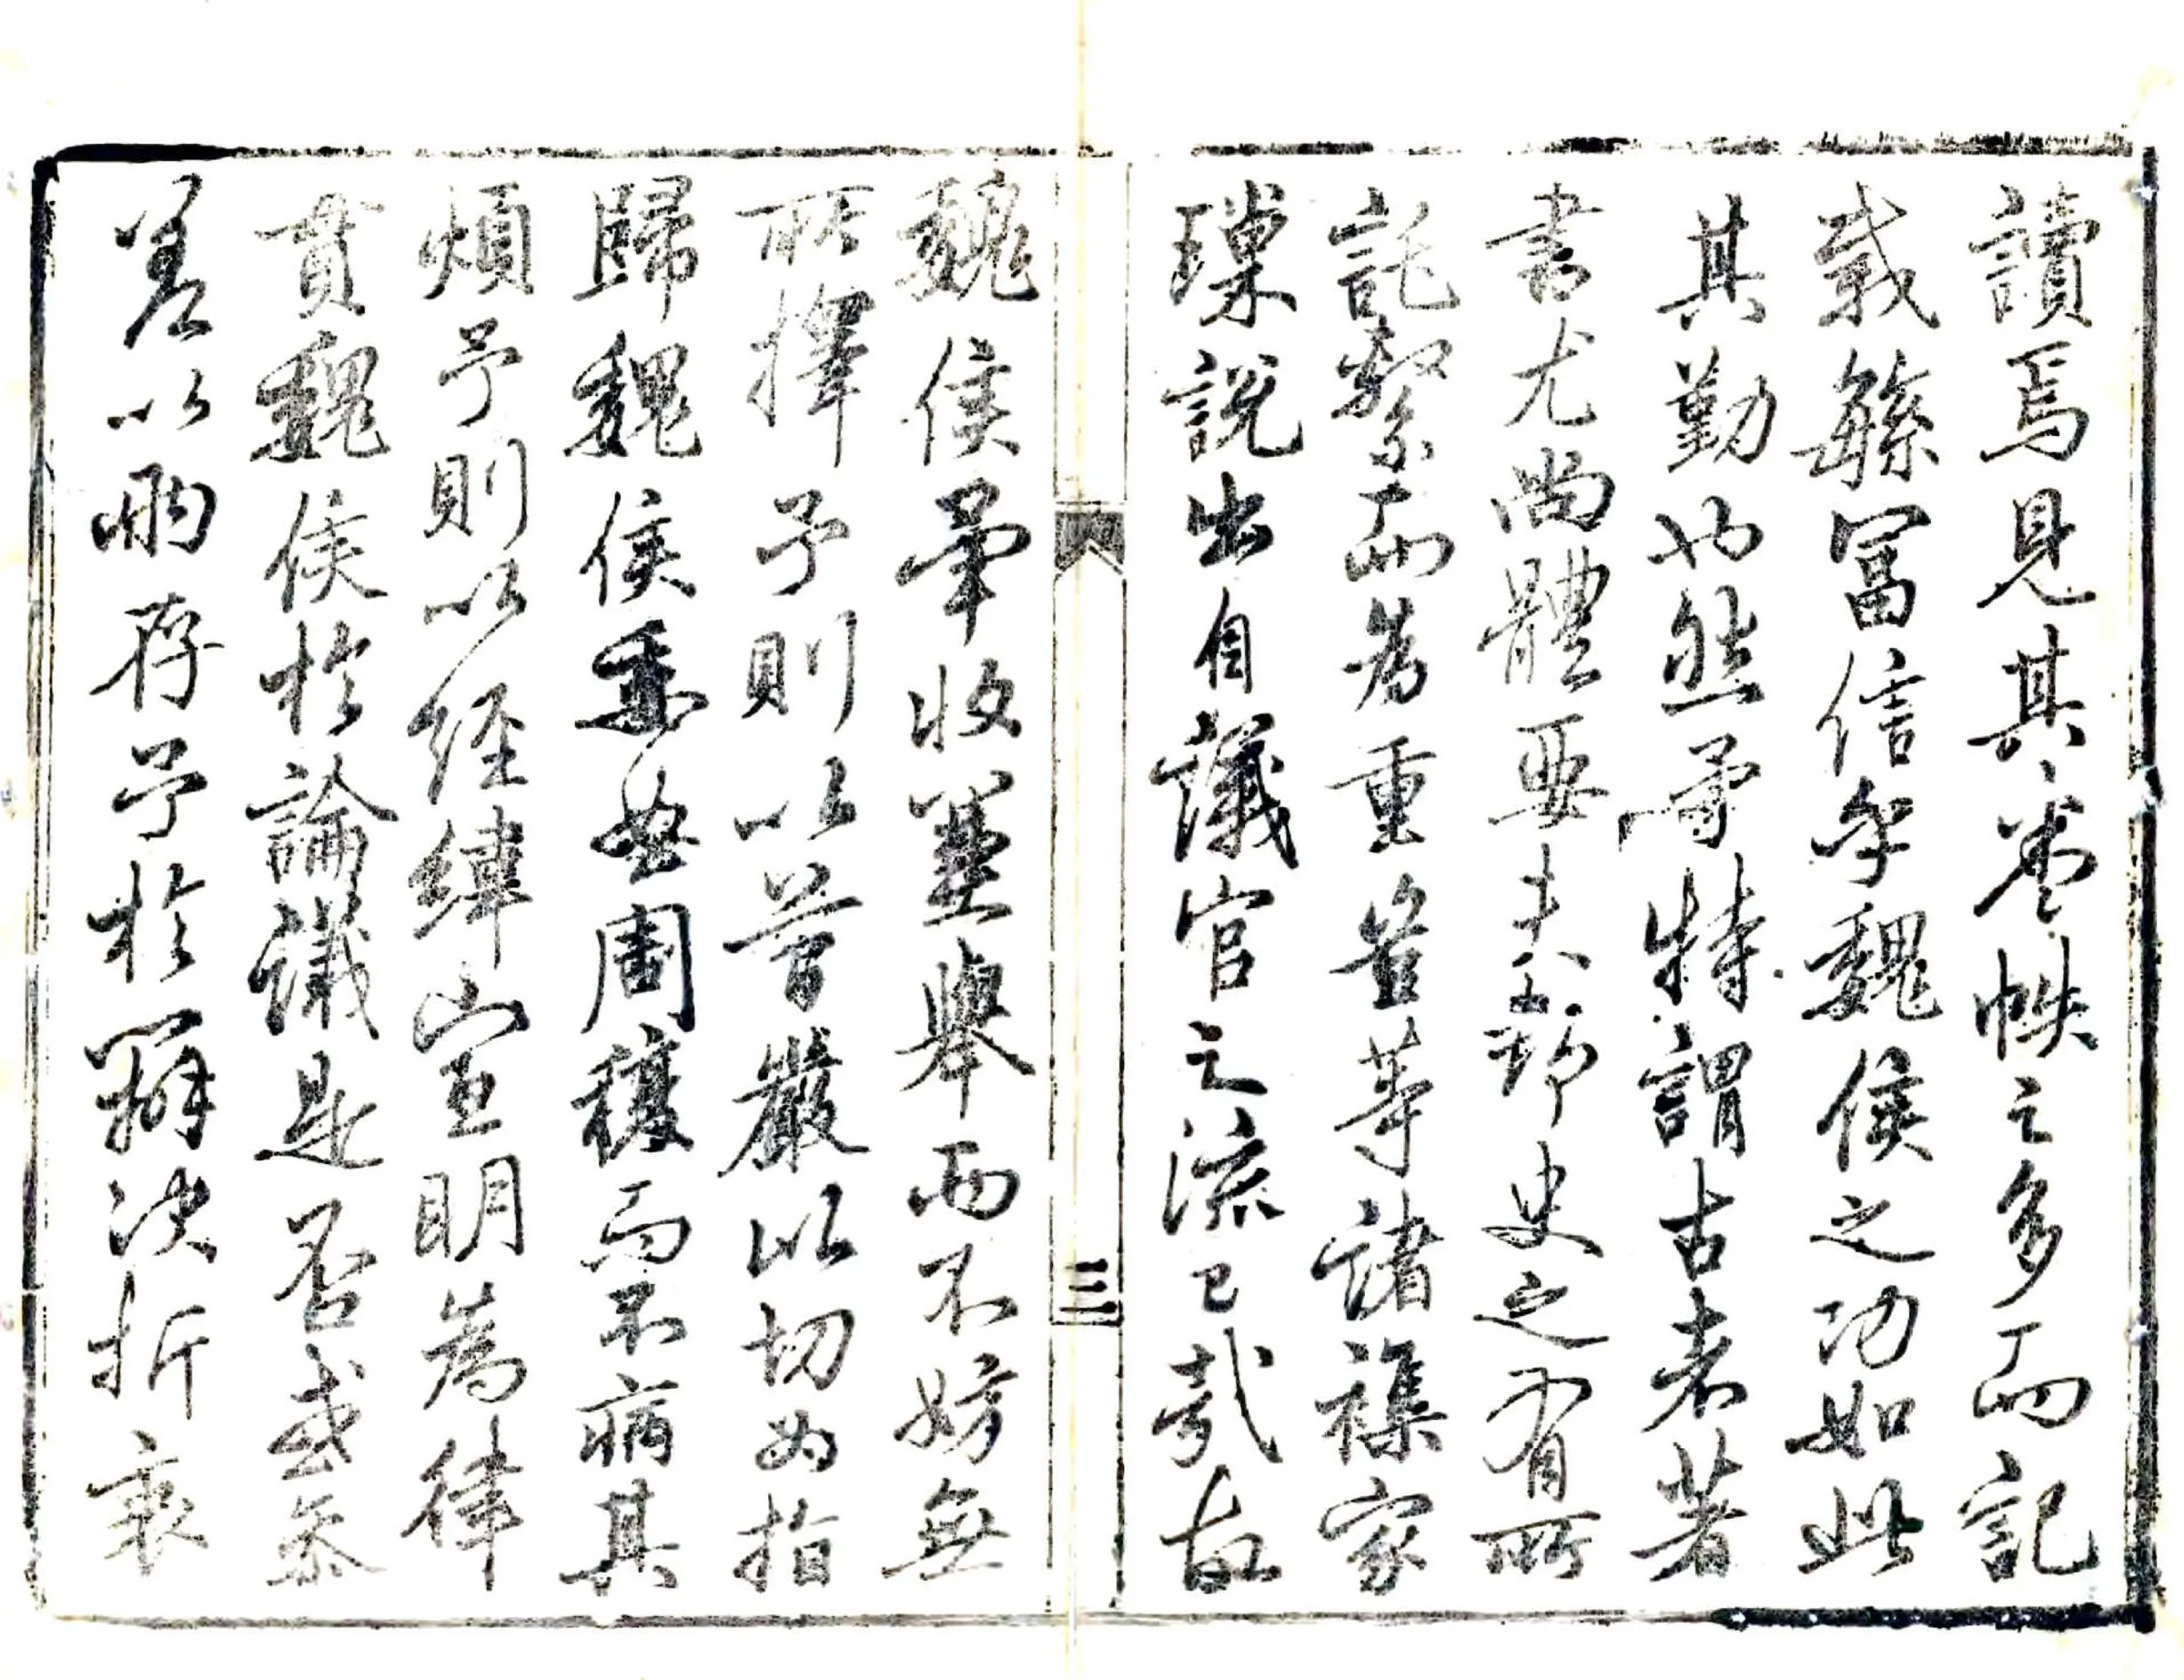 讀焉見其卷帙之多而記
載繇富信乎魏侯之功如此
其勤也然予特謂古者著
書尤尚體要夫郢史之有所
託繫而為重豈等諸襍家
璅說出自議官之流已哉故
三
魏侯彙收並舉而不妨無
所擇予則以普嚴以切為指
歸魏侯委曲周穫而不病其
煩予則以經緯宣明為律
貫魏侯於論議是否或參
差以兩存予於辭決折衷